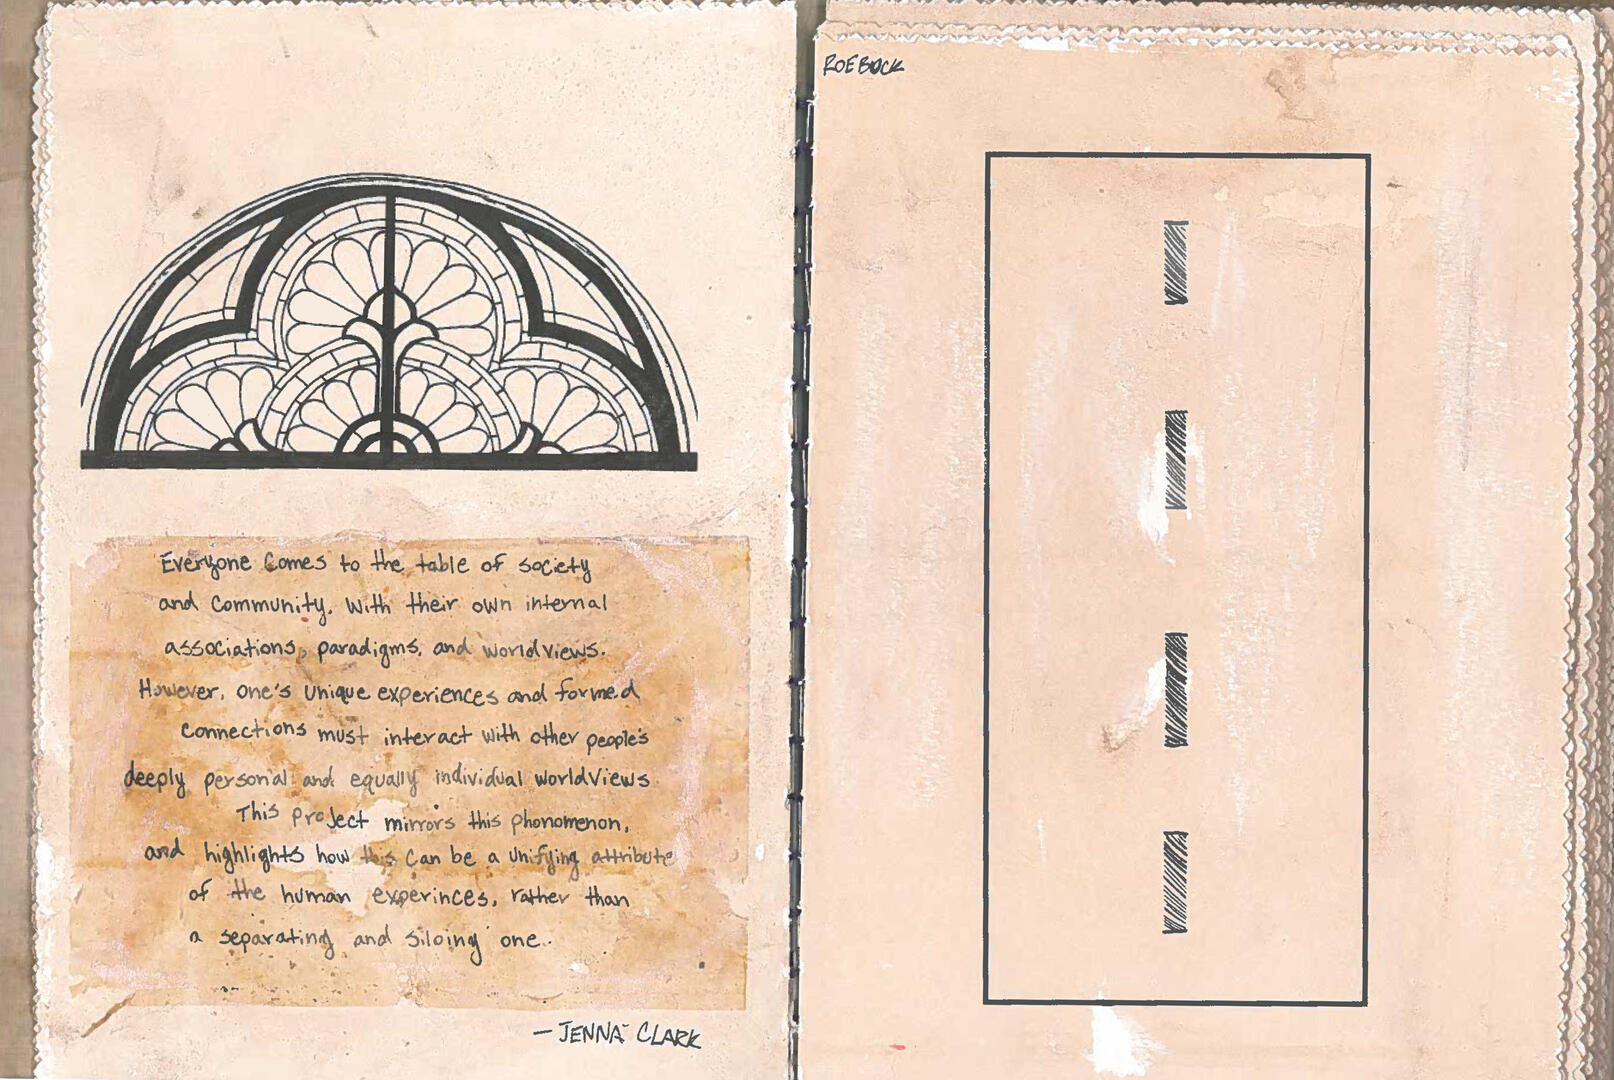 Everyone comes to the table of society
and community, with their own internal
associations, paradigms, and worldviews.
However, one's unique experiences and formed
connections must interact with other people's
deeply personal and equally individual worldviews
This project mirrors this phonomenon,
and highlights how this can be a unifying attribute
of the human experinces, rather than
a separating and siloing one.
— JENNA CLARK
ROEBUCK